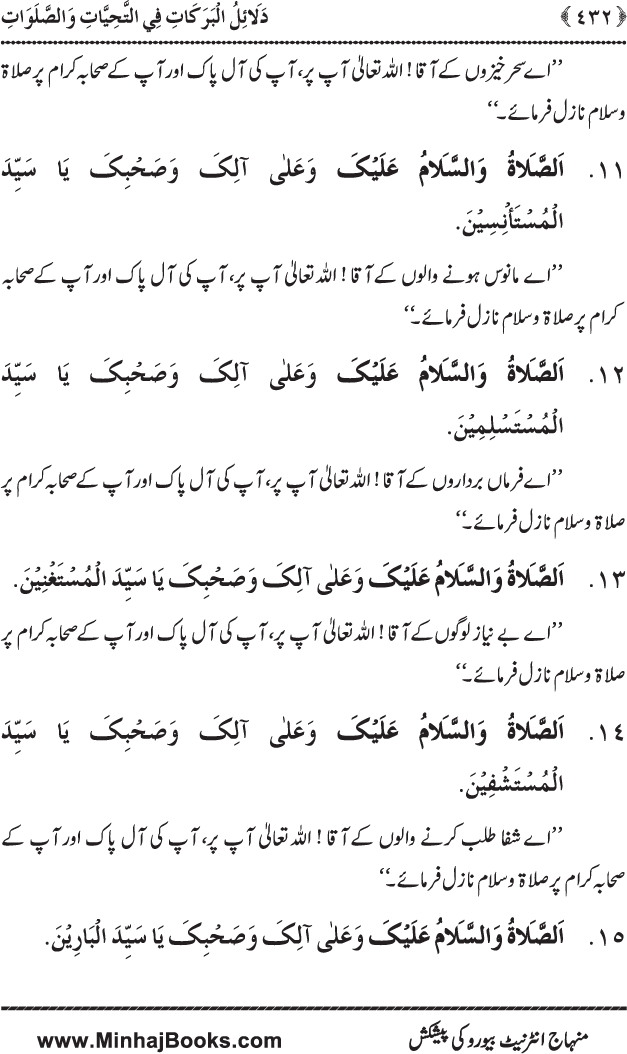 ﴿٤٣٢﴾ دَلَائِلُ الْبَرَكَاتِ فِي التَّحِيَّاتِ وَالصَّلَوَاتِ
’’اے سحر خیزوں کے آقا! اللہ تعالیٰ آپ پر، آپ کی آل پاک اور آپ کے صحابہ کرام پر صلاۃ
وسلام نازل فرمائے۔‘‘
١١. اَلصَّلَاةُ وَالسَّلَامُ عَلَيْکَ وَعَلٰی آلِکَ وَصَحْبِکَ يَا سَيِّدَ
الْمُسْتَأْنِسِيْنَ.
’’اے مانوس ہونے والوں کے آقا! اللہ تعالیٰ آپ پر، آپ کی آل پاک اور آپ کے صحابہ
کرام پر صلاۃ وسلام نازل فرمائے۔‘‘
١٢. اَلصَّلَاةُ وَالسَّلَامُ عَلَيْکَ وَعَلٰی آلِکَ وَصَحْبِکَ يَا سَيِّدَ
الْمُسْتَسْلِمِيْنَ.
’’اے فرماں برداروں کے آقا! اللہ تعالیٰ آپ پر، آپ کی آل پاک اور آپ کے صحابہ کرام پر
صلاۃ وسلام نازل فرمائے۔‘‘
١٣. اَلصَّلَاةُ وَالسَّلَامُ عَلَيْکَ وَعَلٰی آلِکَ وَصَحْبِکَ يَا سَيِّدَ الْمُسْتَغْنِيْنَ.
’’اے بے نیاز لوگوں کے آقا! اللہ تعالیٰ آپ پر، آپ کی آل پاک اور آپ کے صحابہ کرام پر
صلاۃ وسلام نازل فرمائے۔‘‘
١٤. اَلصَّلَاةُ وَالسَّلَامُ عَلَيْکَ وَعَلٰی آلِکَ وَصَحْبِکَ يَا سَيِّدَ
الْمُسْتَشْفِيْنَ.
’’اے شفا طلب کرنے والوں کے آقا! اللہ تعالیٰ آپ پر، آپ کی آل پاک اور آپ کے
صحابہ کرام پر صلاۃ وسلام نازل فرمائے۔‘‘
١٥. اَلصَّلَاةُ وَالسَّلَامُ عَلَيْکَ وَعَلٰی آلِکَ وَصَحْبِکَ يَا سَيِّدَ الْبَارِيْنَ.
منہاج انٹرنیٹ بیورو کی پیشکش www.MinhajBooks.com